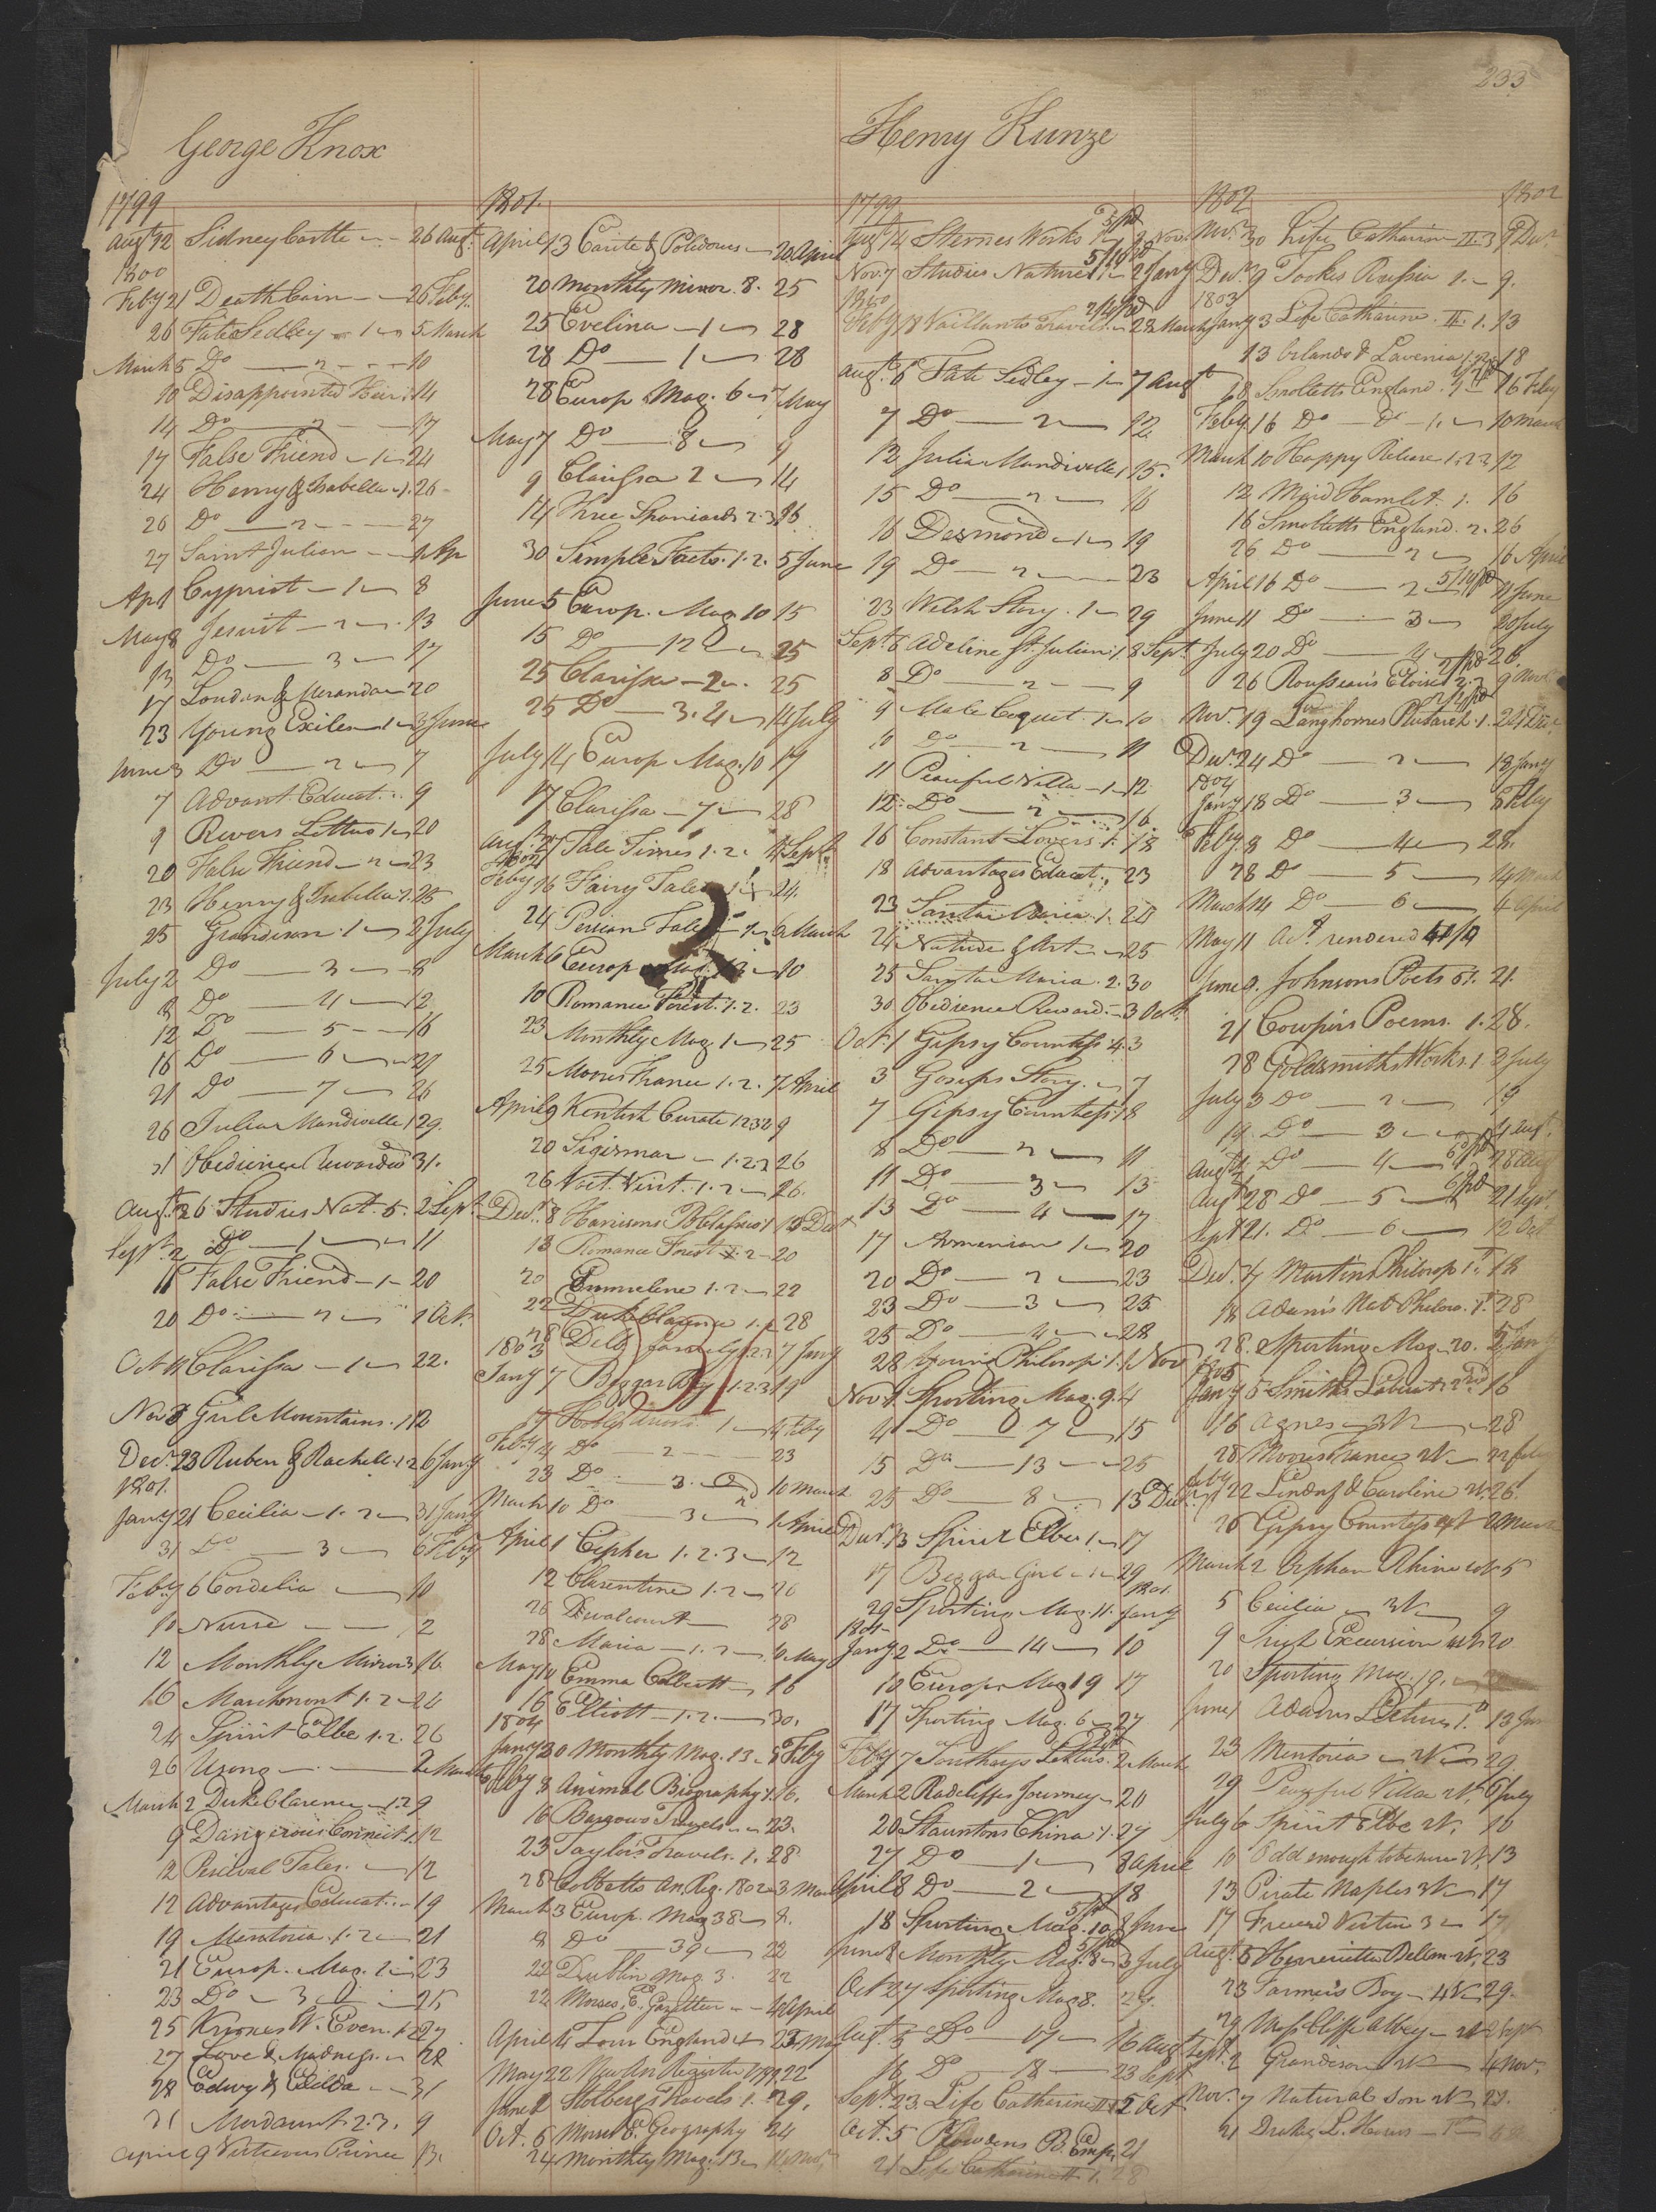 233
George Knox
1799
Augt 12 Sidney Castle 26 Augt
1800
Feby 21 Death Cain 26 Feby
26 Fate Sedley 1 5 March
March 5 Do 2 10
10 Disappointed Heir 1 14
14 Do 2 17
17 False Friend 1 24
24 Henry & Isabella 1. 26
26 Do 2 27
27 Saint Julien 1 Ap
Ap 1 Cypriot 1 8
May 8 Jesuit 2 13
13 Do 3 17
17 Louisa & Meranda 20
23 Young Exiles 1 3 June
June 3 Do 2 7
7 Advant. Educat. 9
9 Rivers Letters 1 20
20 False Friend 2 23
23 Henry & Isabella 2. 25
25 Grandison 1 2 July
July 2 Do 3 8
8 Do 4 12
12 Do 5 16
16 Do 6 21
21 Do 7 26
26 Julia Mandeville 1 29.
31 Obedience Rewarded 31.
Augt 26 Studies Nat. 5. 2 Sept
Sept 2 Do 1 11
11 False Friend 1 20
20 Do 2 1 Oct.
Oct 11 Clarissa 1 22.
Nov 8 Girl Mountains. 1 12
Decr 23 Ruben & Rachell. 1.2 6 Jany
1801.
Jany 21 Cecilia 1.2 31 Jany
31 Do 3 6 Feby
Feby 6 Cordelia 10
10 Nurse 12
12 Monthly Mirror 3 16.
16 Marchmont 1.2 24
24 Spirit Elbe 1.2. 26
26 Usong 2 March
March 2 Duke Clarence 1.2 9
9 Dangerous Connect. 1. 12
12 Percival Tales. 12
12 Advantages Educat. 19
19 Mentoria. 1.2 21
21 Europ. Mag. 2 23
23 Do 3 25
25 Knoxes W. Even. 1.2 27
27 Love & Madness. 28
28 Edwy & Edilda 31
31 Mordaunt 2.3. 9
April 9 Virtuous Prince 13.
1801.
April 13 Carite & Polidorus 20 April
20 Monthly Mirror. 8. 25
25 Evelina 1 28
28 Do 1 28
28 Europ. Mag. 6 7 May
May 7 Do 8 9
9 Clarissa 2 14
14 Three Spaniards 2.3. 16
30 Simple Facts. 1.2. 5 June
June 5 Europ. Mag 10 15
15 Do 12 25
25 Clarissa 2. 25
25 Do 3.4 14 July
July 14 Europ Mag. 10 17
17 Clarissa 7 28
Augt 27 Tale Times 1.2. 4 Sept.
1802
Feby 16 Fairy Tales 1 24.
24 Persian Tales 1 6 March
March 6 Europ Mag. 10
10 Romance Forest. 1.2. 23
23 Monthly Mag. 1 25
25 Moores France 1.2. 7 April
April 9 Kentish Curate 1234 9
20 Sigismar 1.2.3 26
26 Noct. Visit. 1.2 26.
Decr 8 Harrisons B. Classics 1 13 Decr
13 Romance Forest 1.2 20
20 Emmeline 1.2 22
22 Duke Clarence 1.2 28
28 Delb family 1.2.3 7 Jany
1803
Jany 7 Beggar Boy 1.2.3 19
Feby 4 Do 2 23
23 Do 3. 10 March
March 10 Do 3 1 April
April 1 Cypher 1.2.3 12
12 Clarentine 1.2 26
26 Dwalcourt 28
28 Maria 1.2 4 May
May 14 Emma Corbett 16
16 Elliott 1.2. 30.
1804
Jany 30 Monthly Mag. 13 8 Feby
Feby 8 Animal Biography 1. 16.
16 Barrows Travels 23.
23 Taylors Travels. 1. 28
28 Cobbetts An. Reg. 1802 3 March
March 3 Europ. Mag 38 8.
8 Do 39 22
22 Dublin Mag 3. 22
22 Morses Gazetteer 4 April
April 4 Tour England 22 May
May 22 New An. Register 22
June 2 Stolbergs Travels 1. 29.
Oct. 6 Morses E. Geography 24
24 Monthly Mag. 13
Henry Kunze
1799
Augt 14 Sternes Works 9 Nov.
Nov. 7 Studies Nature 1 2 Jany
1800
Feby 18 Vaillants Travels. 28 March
Augt 6 Fate Sedley 1 7 Augt
7 Do 2 12
12 Julia Mandeville 1 15.
15 Do 2 16
16 Desmond 1 19
19 Do 2 23
23 Welsh Story. 1 29
Sept 6 Adeline St Julien 1. 8 Sept.
8 Do 2 9
9 Male Coquet. 1 10
10 Do 2 11
11 Peaceful Villa 1 12
12 Do 2 16
16 Constant Lovers 1. 18
18 Advantages Educat. 23
23 Santa Maria. 1. 24
24 Nature & Art 25
25 Santa Maria. 2. 30
30 Obedience Reward. 3 Oct.
Oct. 1 Gipsy Countess 4. 3
3 Gossips Story. 7
7 Gipsy Countess 1 8
8 Do 2 11
11 Do 3 13
13 Do 4 17
17 Armenian 1 20
20 Do 2 23
23 Do 3 25
25 Do 4 28
28 Young Philosop. 1. 1 Nov
Nov 1 Sporting Mag. 9. 4
4 Do 7 15
15 Do 13 25
25 Do 8 13 Decr
Decr 13 Spirit Elbe 1 17
17 Beggar Girl 1 29
29 Sporting Mag. 11. Jany
1801
Jany 2 Do 14 10
10 Europ. Mag 19 17
17 Sporting Mag. 6 27
Feby 7 Southeys Letters. 2 March
March 2 Radcliffes Journey 20
20 Stauntons China 1. 27
27 Do 1 8 April
April 8 Do 2 18
18 Sporting Mag. 10 8 June
June 8 Monthly Mag. 8 3 July
Oct 27 Sporting Mag 8. 29.
Augt. 5 Do 17 16 Augt
16 Do 18 23 Sept
Sept. 23 Life Catharine II 5 Oct
Oct. 5 Plowdens B. Emp. 21
21 Life Catharine II. 1. 28
1802
1802
Nov. 30 Life Catharine II. 3 9 Decr
Decr 9 Tookes Russia 1. 9.
1803
Jany 3 Life Catharine. II. 1. 13
13 Orlando & Lavinia 1.2. 18
18 Smolletts England. 1 16 Feby
Feby 16 Do 1. 10 March
March 10 Happy Release 1.2.3 12
12 Maid Hamlet. 1. 16
16 Smolletts England. 2. 26
26 Do 2 16 April
April 16 Do 2 11 June
June 11 Do 3 20 July
July 20 Do 4 26.
26 Rousseau's Eloisa 2.3 9 Nov.
Nov. 19 Langhornes Plutarch. 1. 24 Decr
Decr 24 Do 2 18 Jany
1804
Jany 18 Do 3 8 Feby
Feby. 8 Do 4 28.
28 Do 5 14 March
March 14 Do 6 4 April
May 11 Act. rendered
June 9. Johnsons Poets 61. 21.
21 Cowpers Poems. 1. 28.
28 Goldsmiths Works. 1 3 July
July 3 Do 2 19
19 Do 3 4 Augt.
Augt 4 Do 4 28 Augt
Augt 28 Do 5 21 Sept.
Sept 21. Do 6 12 Oct
Decr. 7 Martins Philosop 1. 18
18 Adams Nat Philoso. 1. 28
28. Sporting Mag 20. 5 Jany
1805
Jany 5 Smiths 16
16 Agnes 3 V. 28
28 Moores France 2 V. 22 Feby
Feby 22 Lindorf & Caroline 2 V. 26.
26 Gipsy Countess 4 V 2 March
March 2 Orphan Rhine 4 V 5
5 Cecilia 3 V 9
9 Irish Excursion 4 V. 20
20 Sporting Mag. 19.
June 1 Adams Lectures 1. 13 Jun
23 Mentoria 2 V 29
29 Peaceful Villa 2 V. 6 July
July 6 Spirit Elbe 2 V. 10
10 Odd enough to be sure 2 V. 13
13 Pirate Naples 3 V 17
17 Friend Virtue 3 17
Augt. 5 Henrietta Bellman 2 V. 23
23 Farmers Boy 4 V 29.
29 Miss Cliffe Abbey 2 V 2 Sept
Sept. 2 Grandison 4 Nov.
Nov. 7 Natural Son 2 V 21.
21 Drakes L. Hours